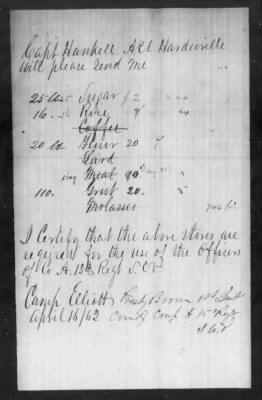 Capt Hankell Act Hardeeville
will please send me
25 lbs Sugar
16 Rice
Coffee
20 lbs Flour 20
Lard
1 bag Meal
110. Grist 20.
Molasses
I Certify that the above stores are
required for the use of the Officers
of Co A. 15th Regt S.C.V.
Camp Elliott Brown 1st Lieut
April 16/62 Comdg Comp A 15 Regt
S C V